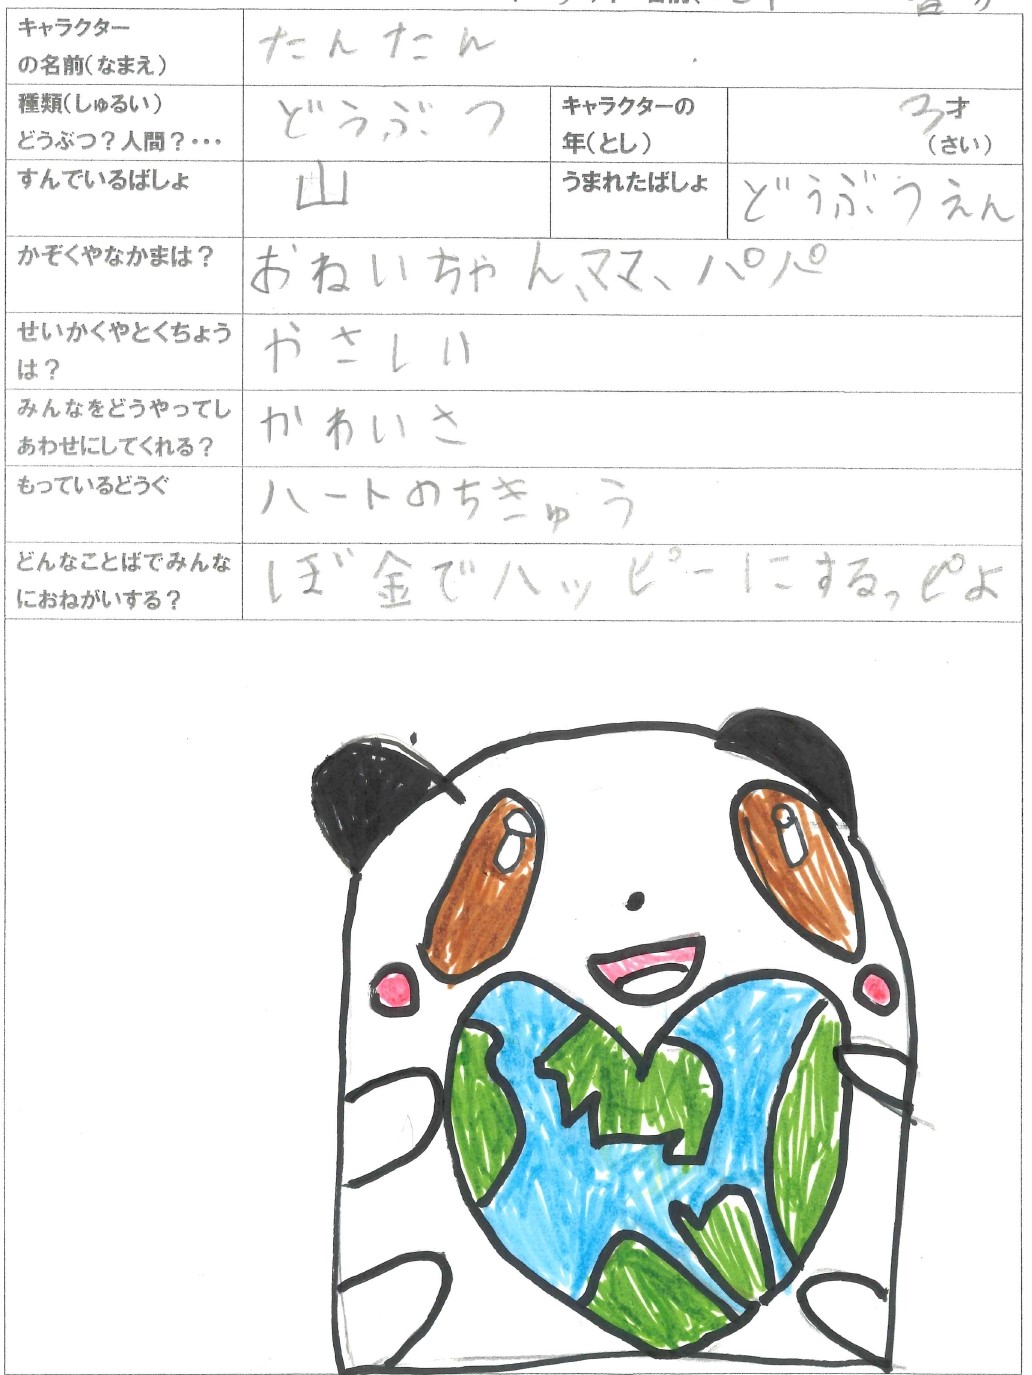 キャラクター
の名前(なまえ)
たんたん
種類(しゅるい)
どうぶつ?人間?・・・
どうぶつ
キャラクターの
年(とし)
3才
(さい)
すんでいるばしょ
山
うまれたばしょ
どうぶつえん
かぞくやなかまは?
おねいちゃん、ママ、パパ
せいかくやとくちょう
は?
やさしい
みんなをどうやってし
あわせにしてくれる?
かわいさ
もっているどうぐ
ハートのちきゅう
どんなことばでみんな
におねがいする?
ぼ金でハッピーにするっピよ